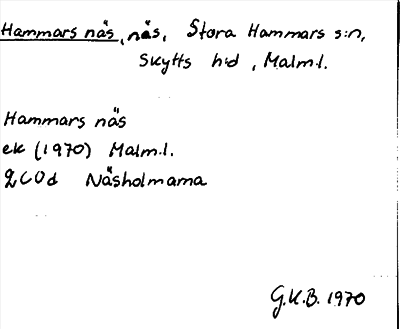 Hammars näs, näs, Stora Hammars s:n,
Skytts hd, Malm.l.
Hammars näs
ek (1970) Malm.l.
2C0d Näsholmarna
G.K.B. 1970